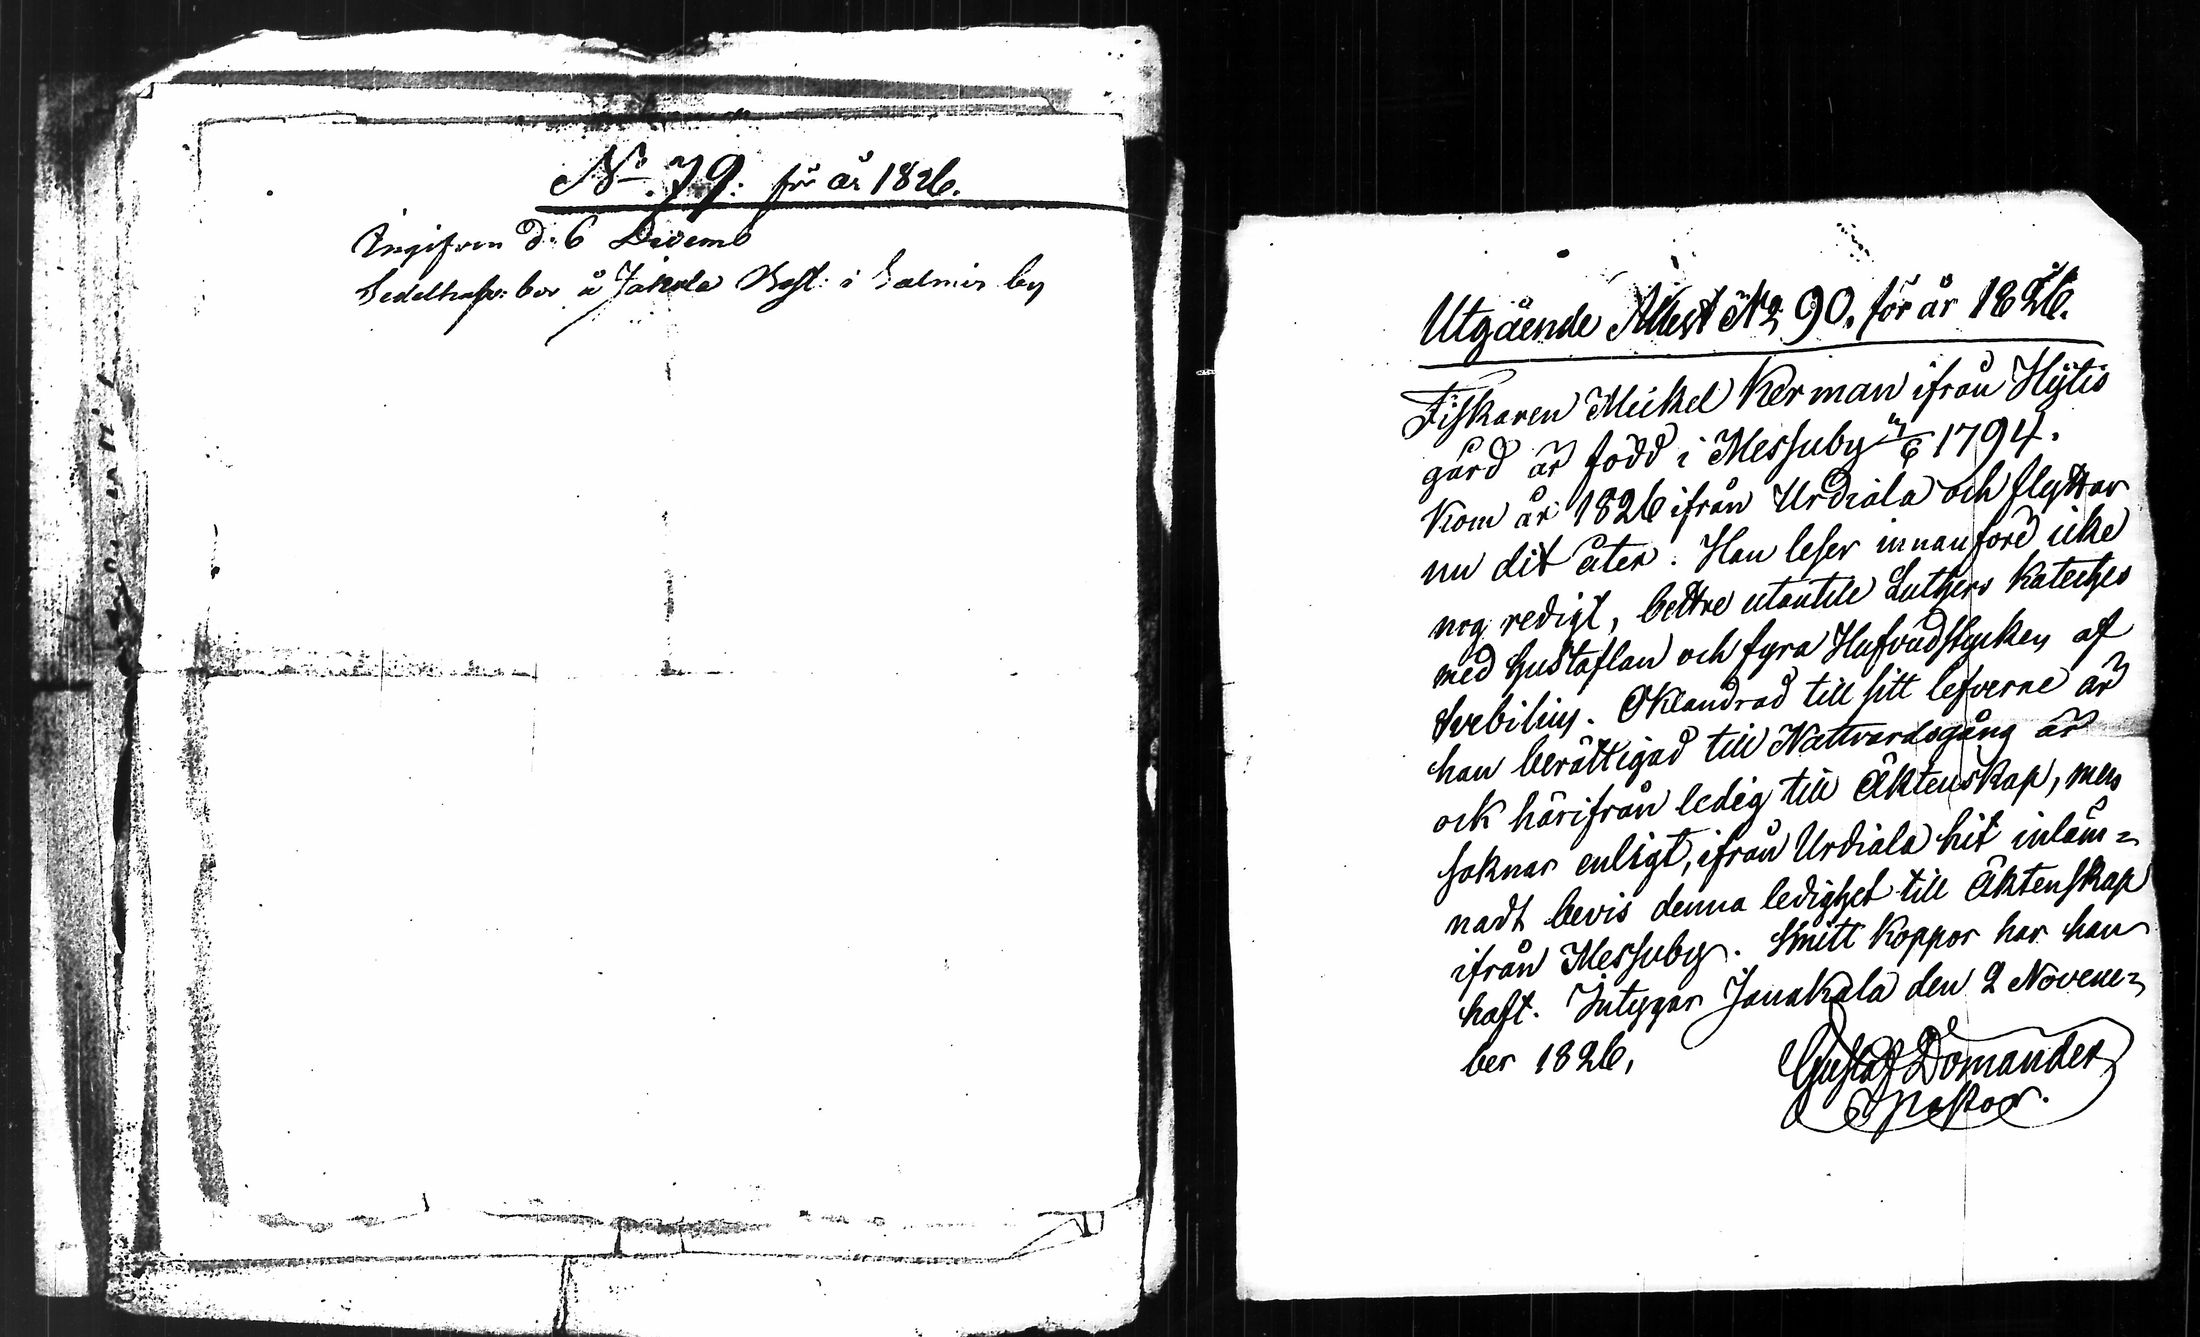 No. 79. för år 1826.
Ingifven d. 6 Decemb
Sedelhafv: bor å Jakola i Salmis by
Utgående Attest No 90. för år 1826.
Fiskaren Mickel Kerman ifrån Hÿtis
gård är född i Messuby 11/6 1794.
Kom år 1826 ifrån Urdiala och flyttar
nu dit åter. Han leser innanford icke
nog redigt, bettre utantill Luthers Kateches
med Hustaflan och fyra Hufvudstycken af
Svebilius. Oklandrad till sitt lefverne är
han berättigad till Nattvardsgång är
ock härifrån ledig till Äktenskap, men
saknar enligt, ifrån Urdiala hit inläm=
nadt bevis denna ledighet till Äktenskap
ifrån Messuby. Smitt Koppor har han
haft. Intygar Janakala den 2 Novem=
ber 1826,
Gustaf Domander
Pastor.